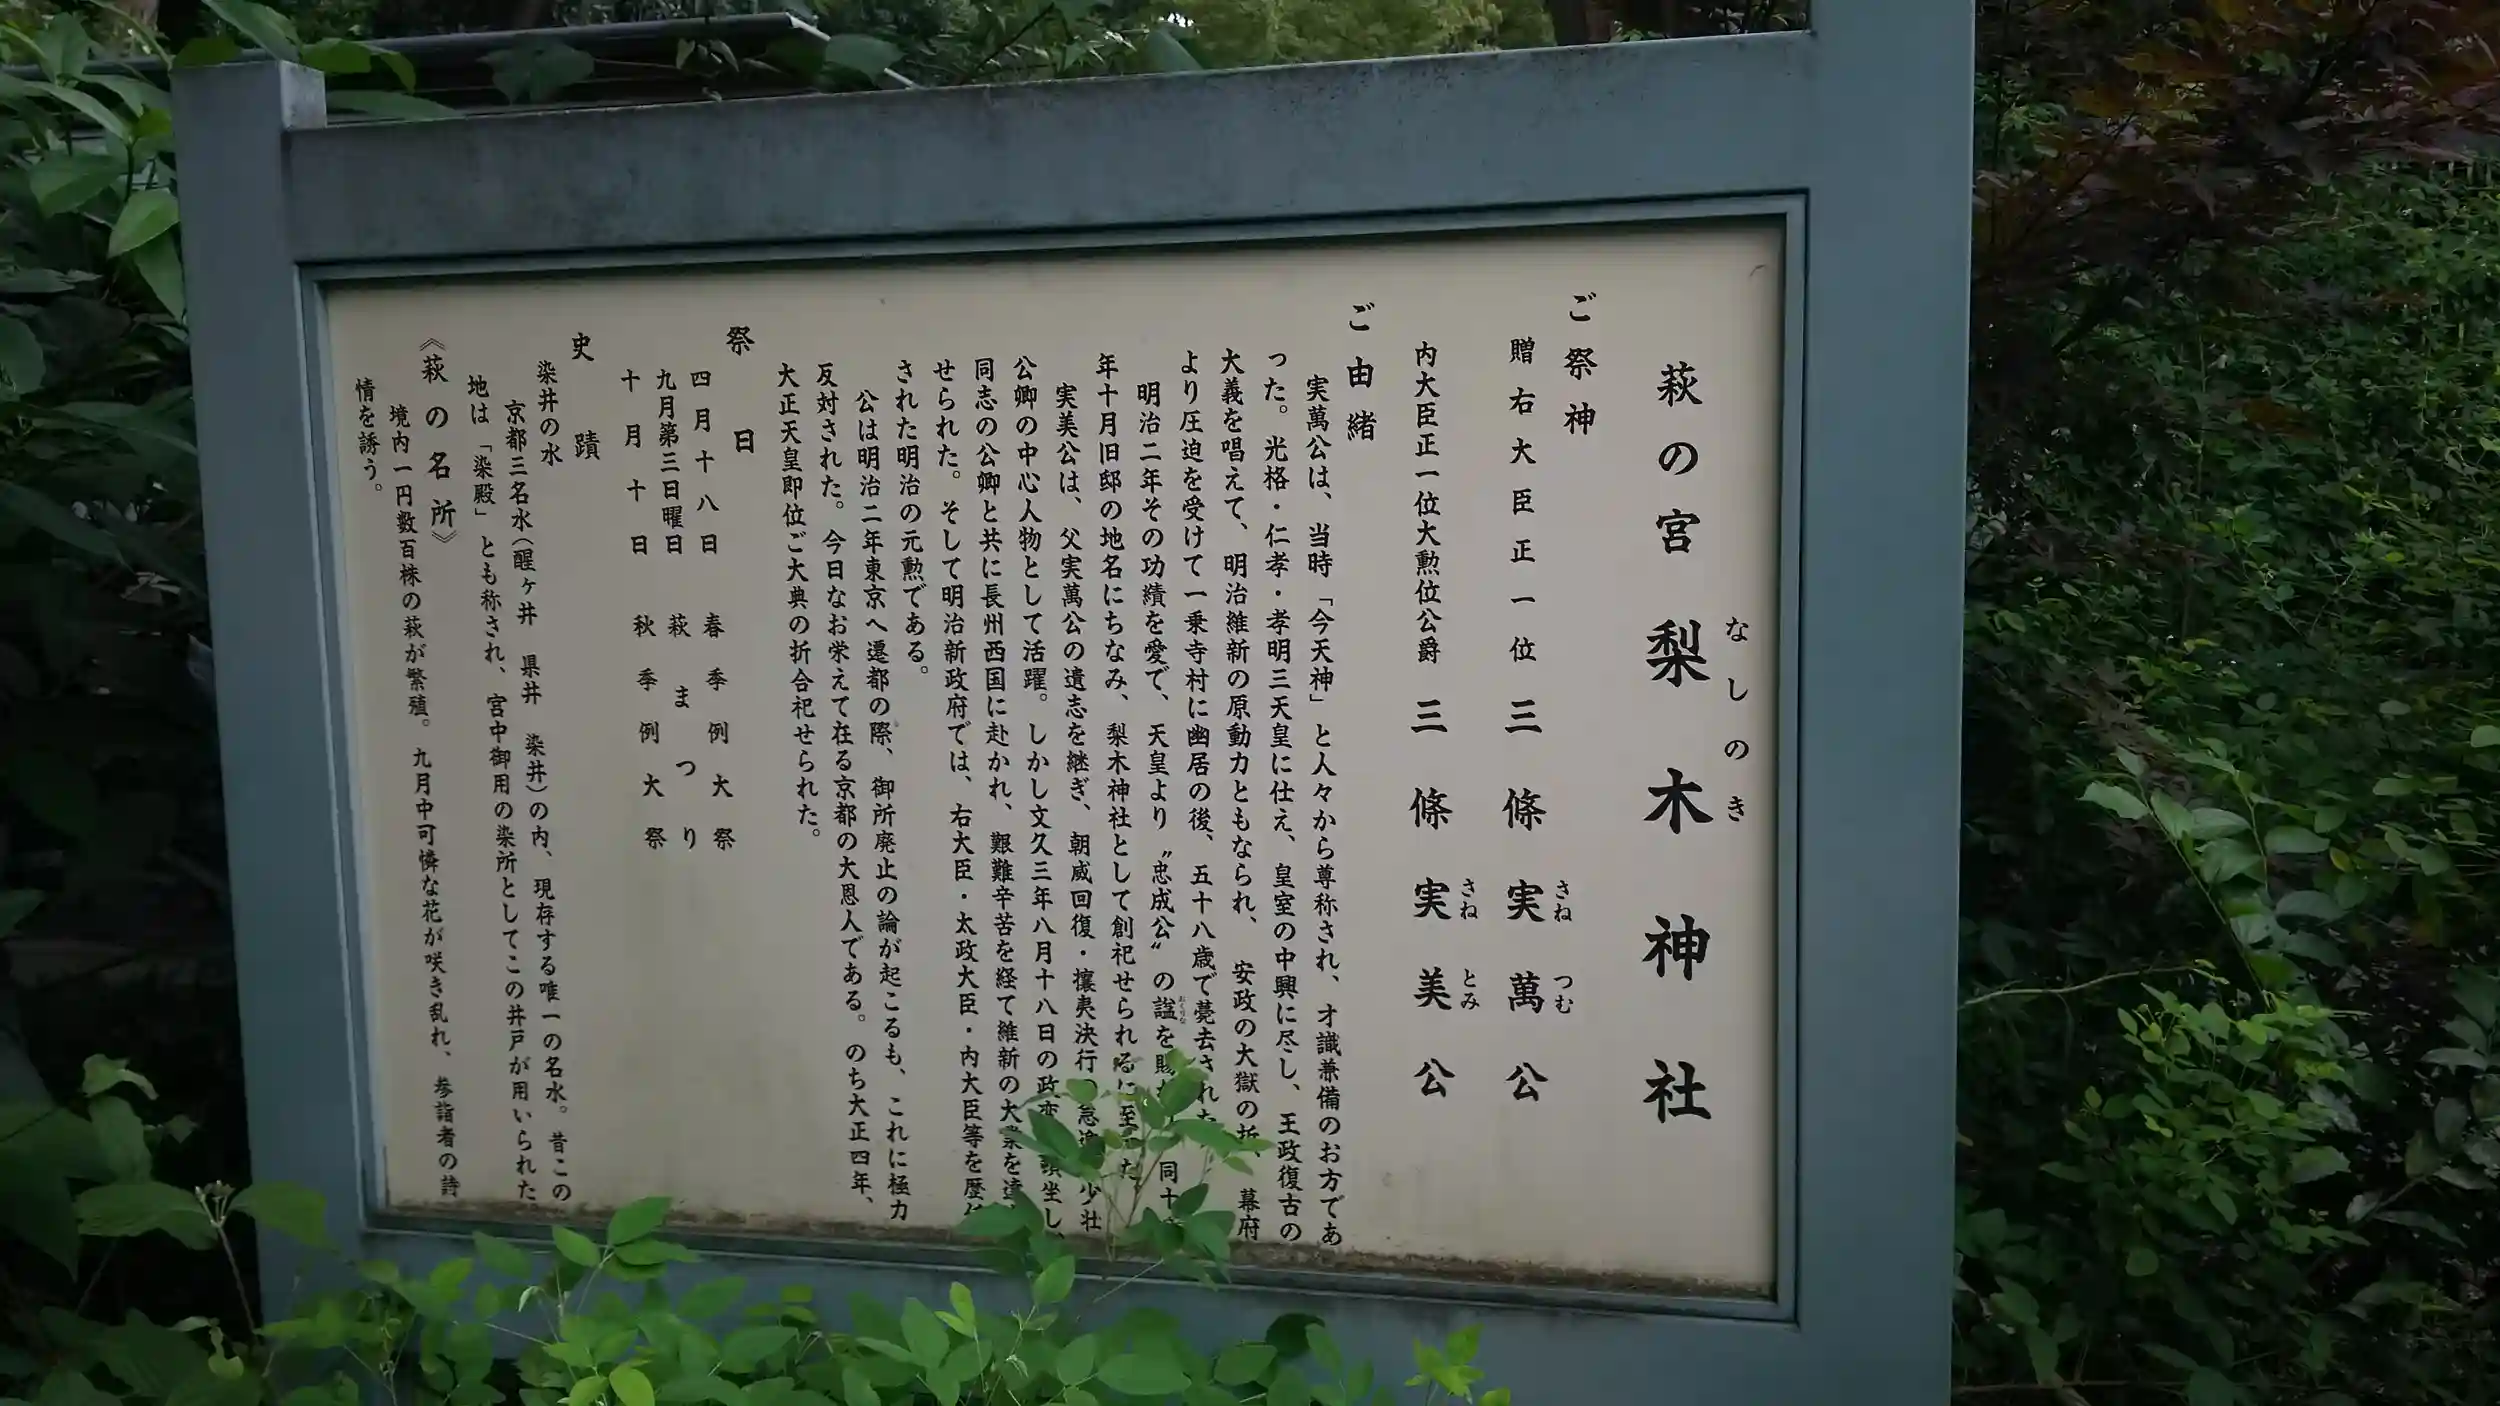 萩の宮 梨木神社
なしのき
ご祭神
贈右大臣正一位 三條実萬公
さねつむ
内大臣正一位大勲位公爵 三條実美公
さねとみ
ご由緒
実萬公は、当時「今天神」と人々から尊称され、才識兼備のお方であ
った。光格・仁孝・孝明三天皇に仕え、皇室の中興に尽し、王政復古の
大義を唱えて、明治維新の原動力ともなられ、安政の大獄の折、幕府
より圧迫を受けて一乗寺村に幽居の後、五十八歳で薨去された
明治二年その功績を愛で、天皇より〝忠成公〟の諡を賜
おくりな
同十
年十月旧邸の地名にちなみ、梨木神社として創祀せられるに至 た
実美公は、父実萬公の遺志を継ぎ、朝威回復・攘夷決行 急 少壮
公卿の中心人物として活躍。しかし文久三年八月十八日の政変 坐し、
同志の公卿と共に長州西国に赴かれ、艱難辛苦を経て維新の大業を達
せられた。そして明治新政府では、右大臣・太政大臣・内大臣等を歴
された明治の元勲である。
公は明治二年東京へ遷都の際、御所廃止の論が起こるも、これに極力
反対された。今日なお栄えて在る京都の大恩人である。のち大正四年、
大正天皇即位ご大典の折合祀せられた。
祭日
四月十八日 春季例大祭
九月第三日曜日 萩まつり
十月十日 秋季例大祭
史蹟
染井の水
京都三名水(醒ヶ井 県井 染井)の内、現存する唯一の名水。昔この
地は「染殿」とも称され、宮中御用の染所としてこの井戸が用いられた。
《萩の名所》
境内一円数百株の萩が繁殖。九月中可憐な花が咲き乱れ、参詣者の詩
情を誘う。